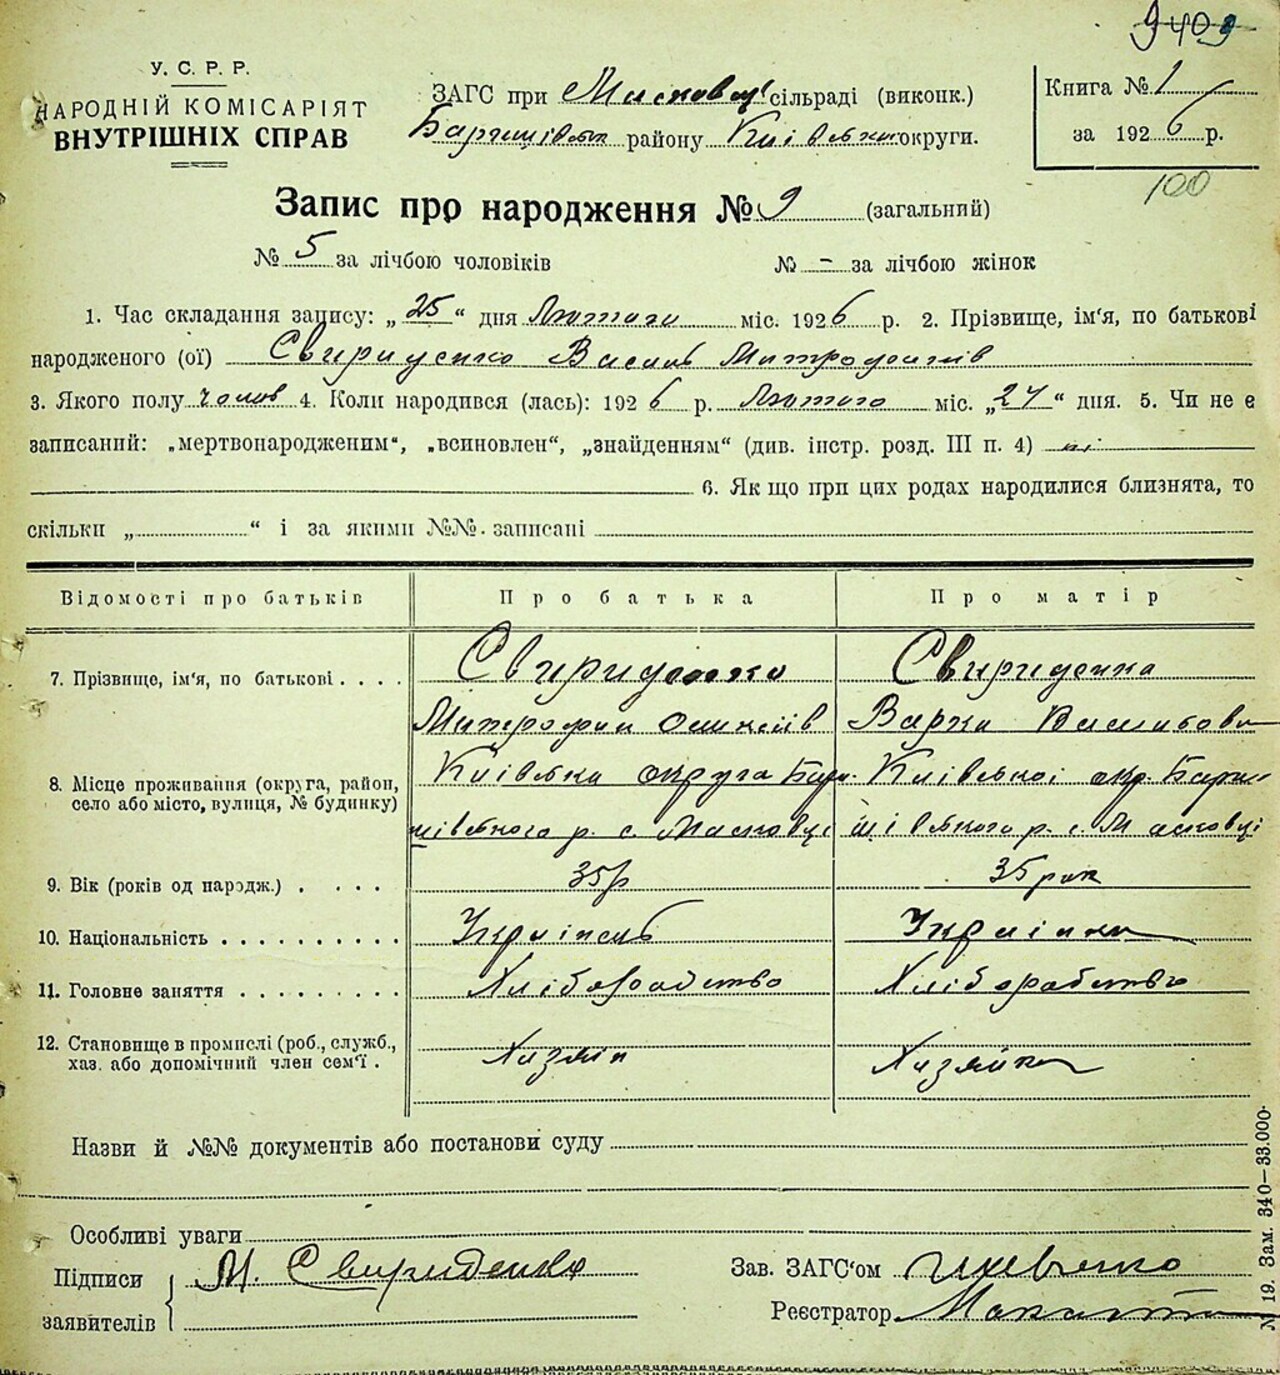 9409
У. С. Р. Р.
НАРОДНІЙ КОМІСАРІЯТ
ВНУТРІШНІХ СПРАВ
ЗАГС при Масковці сільраді (виконк.)
району Київськ округи.
Книга № 1
за 1926 р.
100
Запис про народження № 9 (загальний)
№ 5 за лічбою чоловіків № - за лічбою жінок
1. Час складання запису: „25“ дня Лютого міс. 1926 р. 2. Прізвище, ім'я, по батькові
народженого (ої) Свириденко Василь Митрофанів
3. Якого полу чолов 4. Коли народився (лась): 1926 р. Лютого міс. „24“ дня. 5. Чи не є
записаний: „мертвонародженим“, „всиновлен“, „знайденням“ (див. інстр. розд. III п. 4) ні
6. Як що при цих родах народилися близнята, то
скільки „ “ і за якими №№ записані
Відомості про батьків Про батька Про матір
7. Прізвище, ім'я, по батькові . . . . Свириденко Свириденко
Митрофан Варка Василівна
8. Місце проживання (округа, район,
село або місто, вулиця, № будинку)
Київська округа Бари- Київської окр. Бари-
шівського р. с. Масковці шівського р. с. Масковці
9. Вік (років од народж.) . . . . 35 р 35 рок
10. Національність . . . . . . . . . . Українець Українка
11. Головне заняття . . . . . . . . . Хліборобство Хліборобство
12. Становище в промислі (роб., служб.,
хаз. або допомічний член сем'ї .
Хазяїн Хазяйка
Назви й №№ документів або постанови суду
Особливі уваги
Підписи
заявителів
М. Свириденко
Зав. ЗАГС'ом
Реєстратор
№ 19. Зам. 340—33.000.